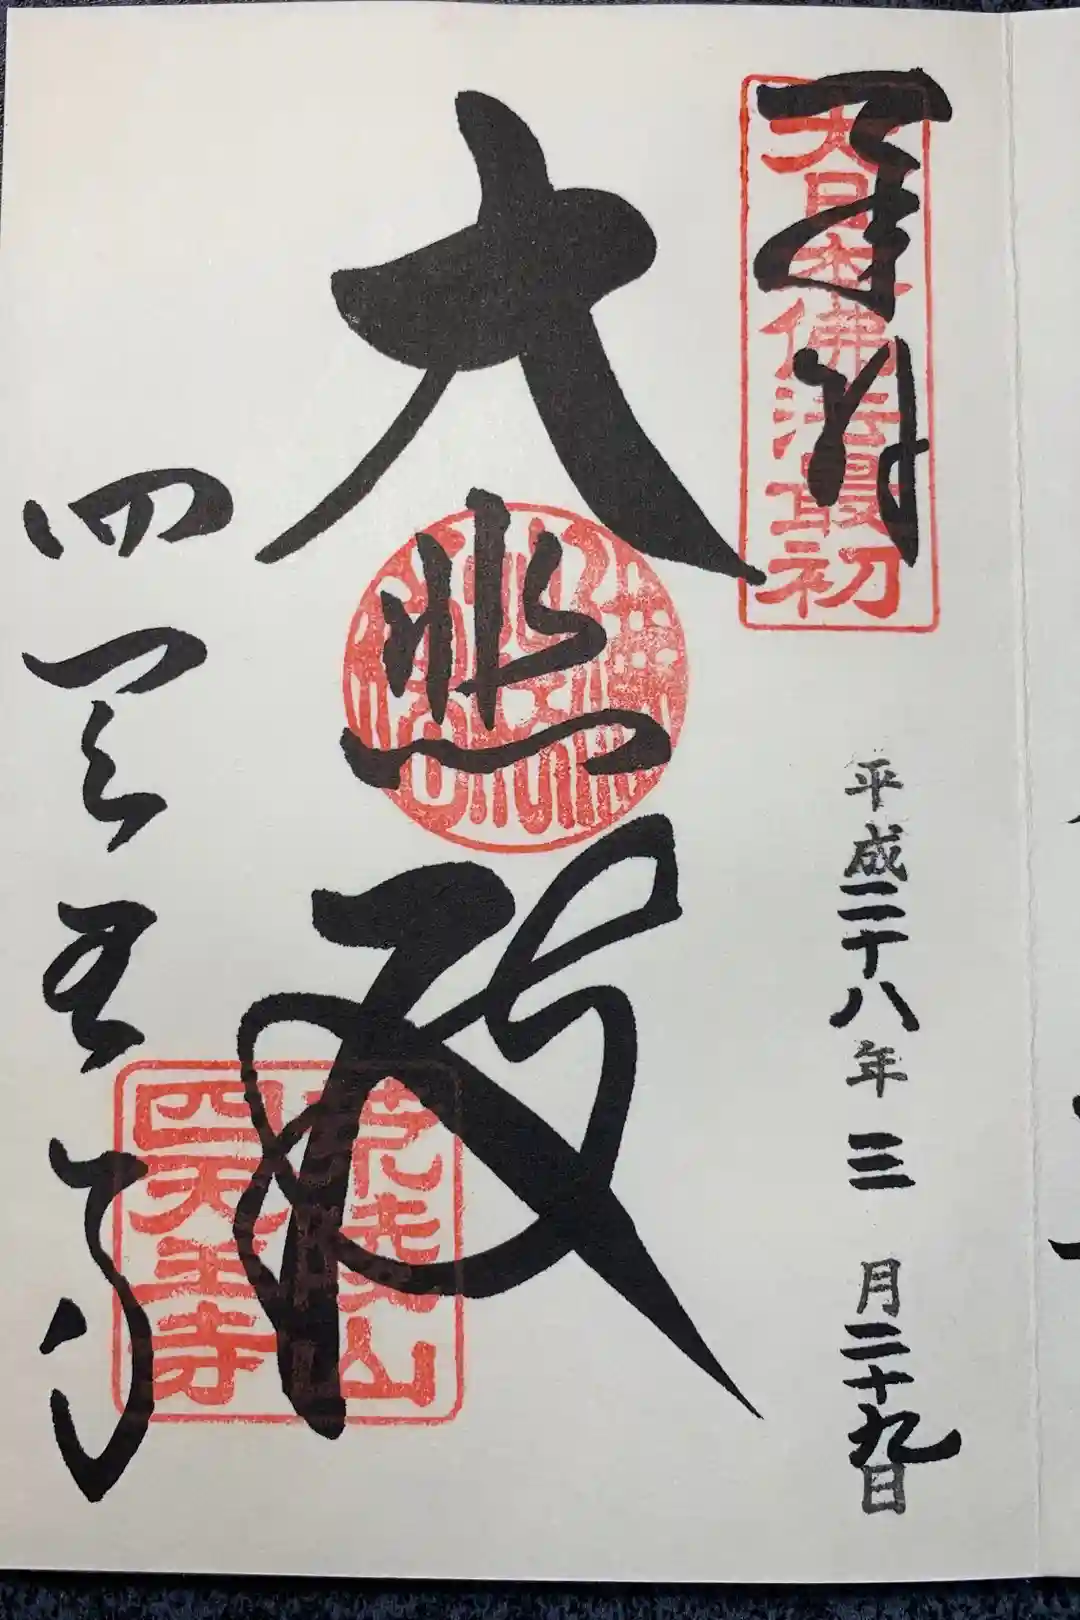 奉拝
大日本佛法最初
平成二十八年三月二十九日
大悲殿
四天王寺
荒陵山
四天王寺